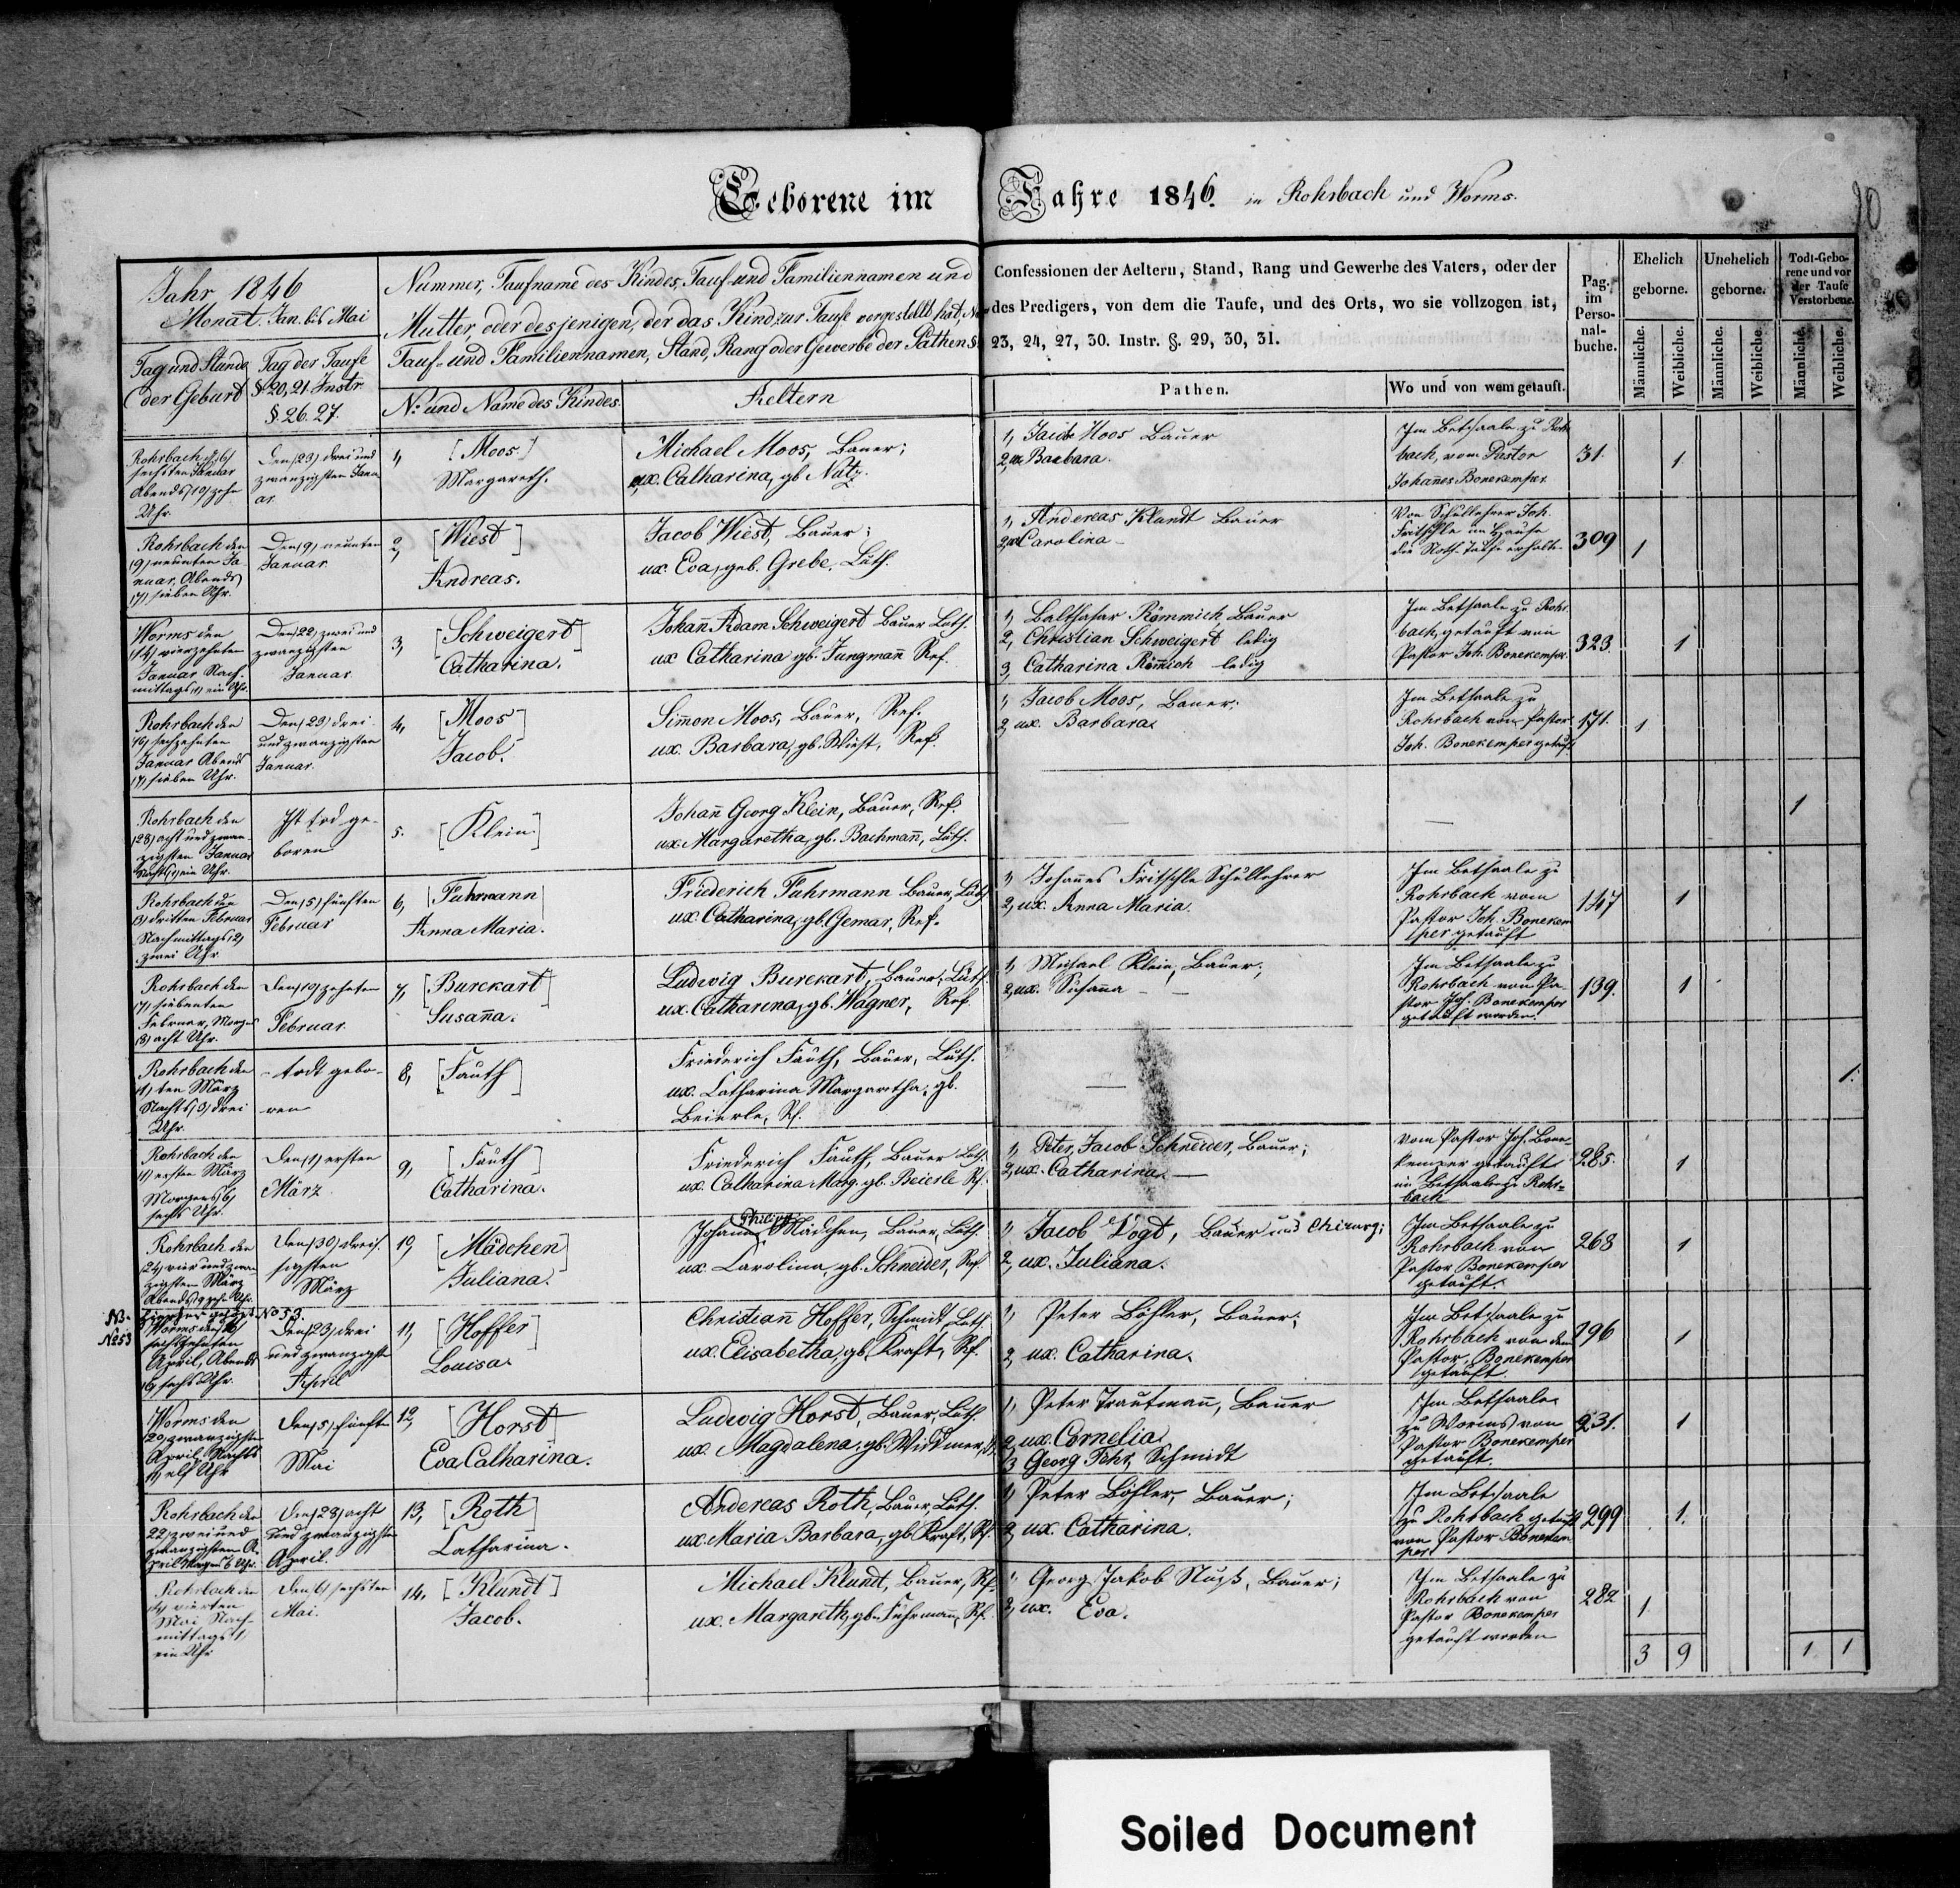 Geborene im Jahre 1846. in Rohrbach und Worms.
10
Jahr 1846
Monat. Jan. bis Mai
Nummer, Taufname des Kindes, Tauf- und Familiennamen und
Mutter oder desjenigen, der das Kind zur Taufe vorgestellt hat,
Tauf- und Familiennamen, Stand, Rang oder Gewerbe der Pathen
Confessionen der Aeltern, Stand, Rang und Gewerbe des Vaters, oder der
des Predigers, von dem die Taufe, und des Orts, wo sie vollzogen ist,
23, 24, 27, 30. Instr. §. 29, 30, 31.
Tag und Stunde
der Geburt
Tag der Taufe
§ 20, 21 Instr.
§. 26. 27.
No: und Name des Kindes.
Aeltern
Pathen.
Wo und von wem getauft.
Pag.
im
Perso-
nal-
buche.
Ehelich
geborne.
Unehelich
geborne.
Todt-Gebo-
rene und vor
der Taufe
Verstorbene.
Männliche.
Weibliche.
Männliche.
Weibliche.
Männliche.
Weibliche.
Rohrbach d. (6)
sechsten Januar
Abends (10) zehn
Uhr.
Den (23) drei und
zwanzigsten Janu
ar.
1,
[Moos.]
Margareth.
Michael Moos, Bauer;
ux. Catharina, gb. Natz.
1, Jacob Moos Bauer
2, ux Barbara.
Im Betsaale zu Rohr
bach, vom Pastor
Johannes Bonekemper.
31.
1.
Rohrbach den
(9) neunten Ja
nuar, Abends
(7) sieben Uhr.
Den (9) neunten
Januar.
2,
[Wiest]
Andreas.
Jacob Wiest, Bauer;
ux. Eva, geb. Grebe, Luth.
1, Andereas Klundt Bauer
2, ux Carolina –
Von Schullehrer Joh.
Fritschle im Hause
die Noth-Taufe erhalte.
309
1
Worms den
(14) vierzehnten
Januar Nach-
mittags (1) ein Uhr.
Den (22) zwei und
zwanzigsten
Januar.
3,
[Schweigert]
Catharina.
Johañ Adam Schweigert Bauer Luth.
ux Catharina gb. Jungmañ Ref.
1, Balthasar Römmich, Bauer
2, Christian Schweigert ledig
3, Catharina Röm̃ich ledig
Im Betsaale zu Rohr
bach, getauft von
Pastor Joh. Bonekemper.
323.
1
Rohrbach den
(16) sechzehnten
Januar Abends
(7) sieben Uhr.
Den (23) drei
und zwanzigsten
Januar.
4,
[Moos]
Jacob.
Sim̃on Moos, Bauer, Ref.
ux. Barbara, gb. Wiest, Ref.
1, Jacob Moos, Bauer;
2, ux. Barbara.
Im Betsaale zu
Rohrbach von Pastor
Joh. Bonekemper getauf.
171.
1
Rohrbach den
(28) acht und zwan
zigsten Januar
Nachts (1) ein Uhr.
Ist tod ge-
boren
5.
[Klein.]
Johañ Georg Klein, Bauer, Ref.
ux Margaretha, gb. Bachmañ, Luth.
–
–
1
Rohrbach den
(3) dritten Februar
Nachmittags (2)
zwei Uhr.
Den (5) fünften
Februar
6,
[Fuhrmann]
Anna Maria.
Friederich Fuhrmann Bauer, Luth
ux. Catharina, gb. Gemar, Ref.
1, Johañes Fritschle Schullehrer
2, ux. Anna Maria.
Im Betsaale zu
Rohrbach vom
Pastor Joh. Bonekem
per getauft
147
1
Rohrbach den
(7) siebenten
Februar, Morgens
(8) acht Uhr.
Den (10) zehnten
Februar.
7,
[Burckart]
Susaña.
Ludwig Burckart, Bauer, Luth.
ux. Catharina, gb. Wagner, Ref.
1, Michael Klein, Bauer;
2, ux. Susaña – –
Im Betsaale zu
Rohrbach von Pa
stor Joh. Bonekemper
getauft worden.
139.
1
Rohrbach den
(1) ten März
Nachts (3) drei
Uhr.
– todt gebo-
ren
8,
[Fauth]
Friederich Fauth, Bauer, Luth.
ux. Catharina Margaretha, gb.
Beierle, Rf.
–
1.
Rohrbach den
(1) ersten März
Morgens (6)
sechs Uhr.
Den (1) ersten
März.
9,
[Fauth]
Catharina.
Friederich Fauth, Bauer Luth.
ux. Catharina Marg. gb. Beierle Rf.
1, Peter Jacob Schneider, Bauer;
2, ux. Catharina. –
Vom Pastor Joh. Bone-
kemper getauft
im Betsaale zu Rohr=
bach
285.
1
Rohrbach den
(24) vier und zwan
zigsten März
Den (30) dreis.
sigsten
März
10,
[Mädchen]
Juliana.
Philipp
Johann Mädchen, Bauer, Luth.
ux. Carolina, gb. Schneider, Ref.
1, Jacob Vogt, Bauer und Chirurg;
2, ux. Juliana.
Im Betsaale zu
Rohrbach von
Pastor Bonekemper
getauft.
268
1
NB.
No 53
No 53.
Worms den (16)
sechzehnten
April, Abends
(6) sechs Uhr.
Den (23) drei
und zwanzigste
April
11,
[Hoffer]
Louisa.
Christiañ Hoffer, Schmidt, Luth.
ux. Elisabetha, gb. Kraft, Rf.
1, Peter Böhler, Bauer;
2, ux. Catharina.
Im Betsaale zu
Rohrbach von dem
Pastor Bonekemper
getauft.
296
1
Worms den
(20) zwanzigsten
April, Nachts
(11) elf Uhr
Den (5) fünften
Mai
12,
[Horst]
Eva Catharina.
Ludwig Horst, Bauer, Luth.
ux. Magdalena, gb. Widmer,
1, Peter Trautmañ, Bauer
2, ux. Cornelia
3 Georg Fehr, Schmidt
Im Betsaale
zu Worms von
Pastor Bonekemper
getauft.
231.
1
Rohrbach den
22, zwei und
zwanzigsten A
pril Morgens 6 Uhr.
Den (28) acht
und zwanzigsten
April.
13,
[Roth]
Catharina.
Andereas Roth, Bauer, Luth.
ux. Maria Barbara, gb. Kraft, Rf.
1, Peter Böhler, Bauer;
2, ux. Catharina.
Im Betsaale
zu Rohrbach getauft
von Pastor Bonekem
per.
299
1.
Rohrbach den
(4) vierten
Mai Nach-
mittags (1)
ein Uhr
Den (6) sechsten
Mai.
14,
[Klundt]
Jacob.
Michael Klundt, Bauer, Rf.
ux. Margareth, gb. Fuhrmañ, Rf.
1, Georg Jakob Nuß, Bauer;
2, ux. Eva.
Im Betsaale zu
Rohrbach von
Pastor Bonekemper
getauft worden
282
1
3 9 1 1
Soiled Document